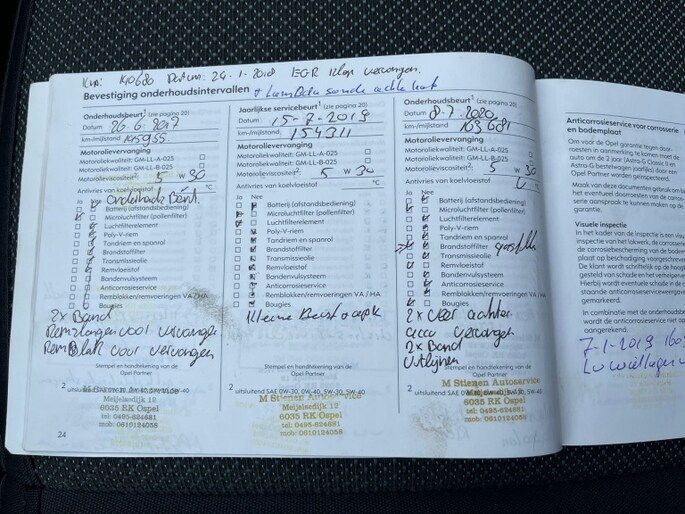 Km: 140680 Datum: 24-1-2018 EGR Klep vervangen.
Bevestiging onderhoudsintervallen + Lambda sonde achter kat
Onderhoudsbeurt¹ (zie pagina 20)
Datum 26-6-2017
km-/mijlstand
Motorolievervanging
Motoroliekwaliteit: GM-LL-A-025
Motoroliekwaliteit: GM-LL-B-025
Motorolieviscositeit²: 5 W 30
Antivries van koelvloeistof °C
Ja Nee onderhouds Beurt
Batterij (afstandsbediening)
Microluchtfilter (pollenfilter)
Luchtfilterelement
Poly-V-riem
Tandriem en spanrol
Brandstoffilter
Transmissieolie
Remvloeistof
Bandenvulsysteem
Anticorrosieservice
Remblokken/remvoeringen VA / HA
Bougies
2x Band
Remslangen voor vervangen
Remblok voor vervangen
Stempel en handtekening van de
Opel Partner
² uitsluitend SAE 0W-30, 0W-40, 5W-30, 5W-40
M Stienen Autoservice
Meijelsedijk 12
6035 RK Ospel
tel: 0495-624681
mob: 0610124058
24
Jaarlijkse servicebeurt¹ (zie pagina 20)
Datum 15-7-2019
km-/mijlstand 154311
Motorolievervanging
Motoroliekwaliteit: GM-LL-A-025
Motoroliekwaliteit: GM-LL-B-025
Motorolieviscositeit²: 5 W 30
Antivries van koelvloeistof °C
Ja Nee
Batterij (afstandsbediening)
Microluchtfilter (pollenfilter)
Luchtfilterelement
Poly-V-riem
Tandriem en spanrol
Brandstoffilter
Transmissieolie
Remvloeistof
Bandenvulsysteem
Anticorrosieservice
Remblokken/remvoeringen VA / HA
Bougies
Kleine Beurt + apk
Stempel en handtekening van de
Opel Partner
² uitsluitend SAE 0W-30, 0W-40, 5W-30, 5W-40
M Stienen Autoservice
Meijelsedijk 12
6035 RK Ospel
tel: 0495-624681
mob: 0610124058
Onderhoudsbeurt¹ (zie pagina 20)
Datum 8-7-2020
km-/mijlstand 163681
Motorolievervanging
Motoroliekwaliteit: GM-LL-A-025
Motoroliekwaliteit: GM-LL-B-025
Motorolieviscositeit²: 5 W 30
Antivries van koelvloeistof °C
Ja Nee
Batterij (afstandsbediening)
Microluchtfilter (pollenfilter)
Luchtfilterelement
Poly-V-riem
Tandriem en spanrol
Brandstoffilter
Transmissieolie
Remvloeistof
Bandenvulsysteem
Anticorrosieservice
Remblokken/remvoeringen VA / HA
Bougies
2x veer achter
accu vervangen
2x Band
Uitlijnen
Stempel en handtekening van de
Opel Partner
² uitsluitend SAE 0W-30, 0W-40, 5W-30, 5W-40
M Stienen Autoservice
Meijelsedijk 12
6035 RK Ospel
tel: 0495-624681
mob: 0610124058
Anticorrosieservice voor carrosserie
en bodemplaat
Om voor de Opel garantie tegen door-
roesten in aanmerking te komen moet de
auto om de 2 jaar (Astra-G Classic II en
Astra-G bestelwagen jaarlijks) door een
Opel Partner worden geïnspecteerd.
Maak van deze documenten gebruik om bij
het eventueel doorroesten van de carros-
serie aanspraak te kunnen maken op de
garantie.
Visuele inspectie
In het kader van de inspectie is een visuele
inspectie van het lakwerk, de carrosserie en
de corrosiebescherming van de bodem-
plaat op beschadiging voorgeschreven.
De klant wordt schriftelijk op de hoogte
gesteld van schade en het verhelpen
Hierbij wordt eventuele schade in de
staande anticorrosieservice
gemarkeerd.
In combinatie met de onderhouds
wordt de anticorrosieservice niet
aangerekend.
7-1-2019